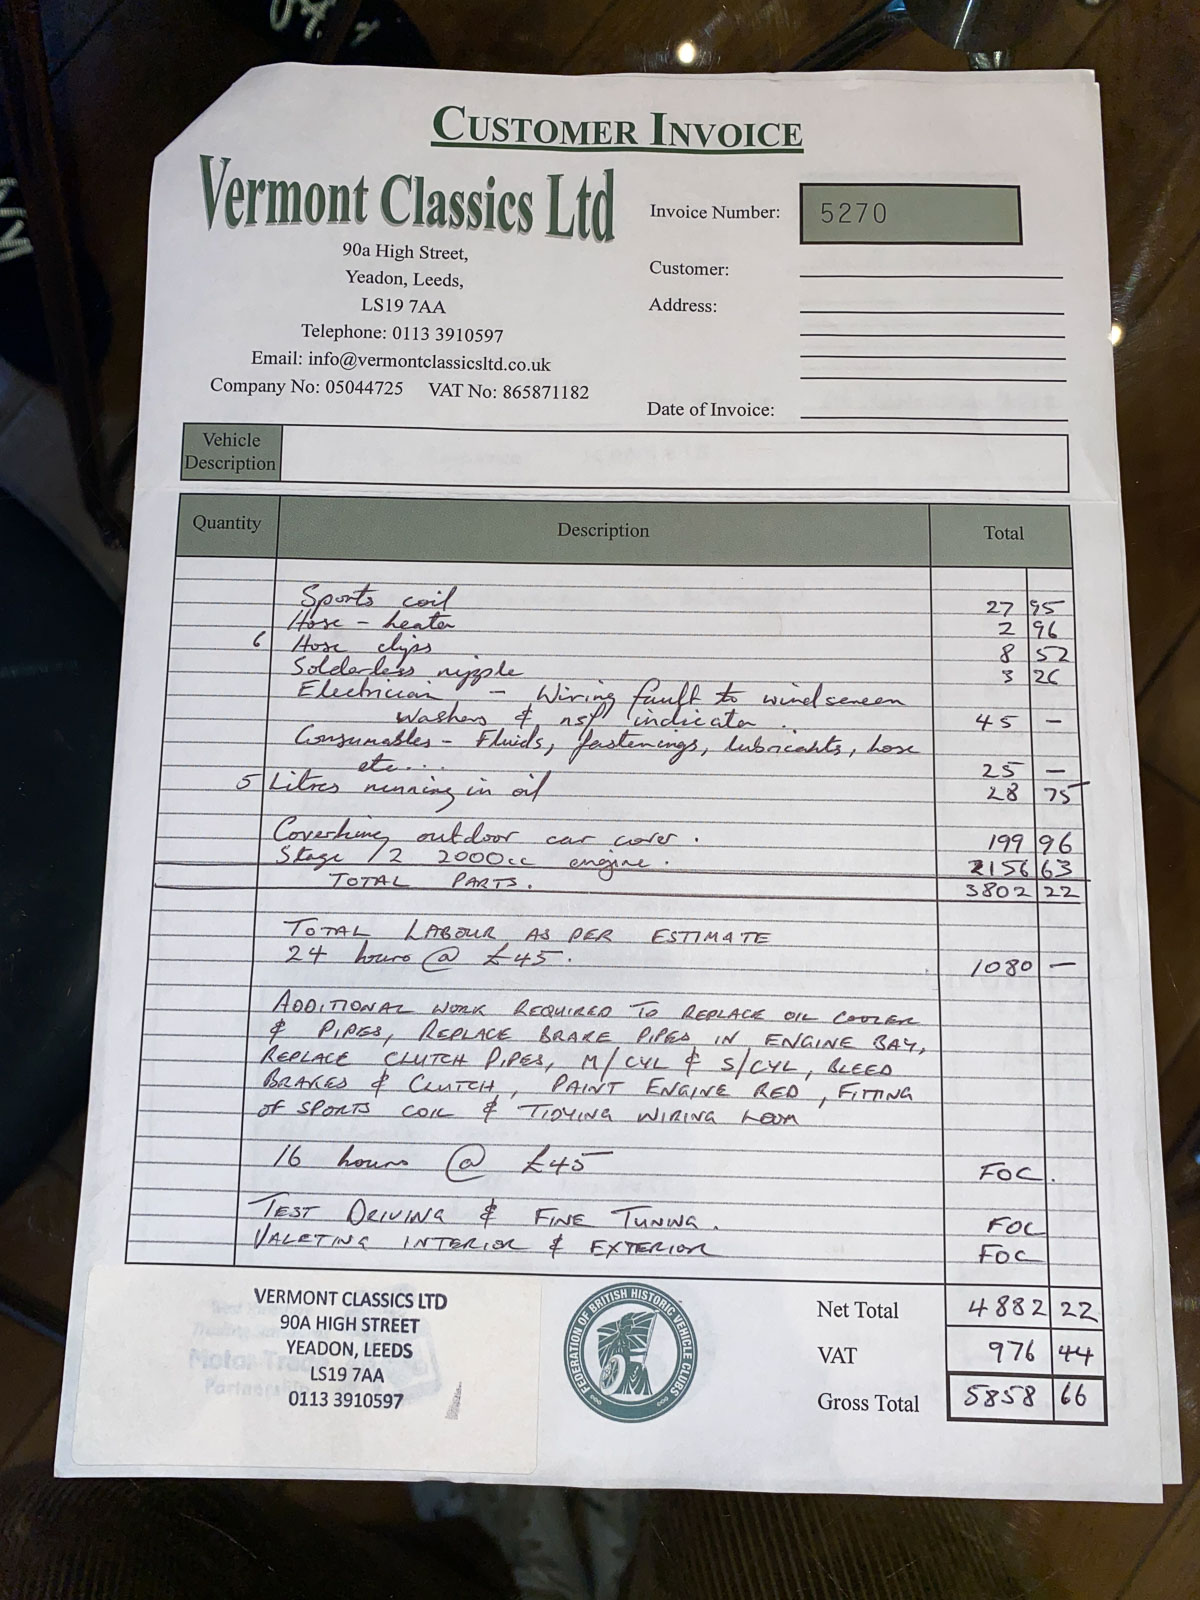 CUSTOMER INVOICE
Vermont Classics Ltd
90a High Street,
Yeadon, Leeds,
LS19 7AA
Telephone: 0113 3910597
Email: info@vermontclassicsltd.co.uk
Company No: 05044725 VAT No: 865871182
Invoice Number: 5270
Customer:
Address:
Date of Invoice:
Vehicle Description
Quantity Description Total
Sports coil 27 95
Hose - heater 2 96
6 Hose clips 8 52
Solderless nipple 3 26
Electrician - Wiring fault to windscreen
washers & nsf indicator. 45 -
Consumables - Fluids, fastenings, lubricants, hose
etc... 25 -
5 Litres running in oil 28 75
Coverking outdoor car cover. 199 96
Stage 1/2 2000cc engine. 2156 63
TOTAL PARTS. 3802 22
TOTAL LABOUR AS PER ESTIMATE
24 hours @ £45. 1080 -
ADDITIONAL WORK REQUIRED TO REPLACE OIL COOLER
& PIPES, REPLACE BRAKE PIPES IN ENGINE BAY,
REPLACE CLUTCH PIPES, M/CYL & S/CYL, BLEED
BRAKES & CLUTCH, PAINT ENGINE RED, FITTING
OF SPORTS COIL & TIDYING WIRING LOOM
16 hours @ £45 FOC.
TEST DRIVING & FINE TUNING. FOC
VALETING INTERIOR & EXTERIOR FOC
VERMONT CLASSICS LTD
90A HIGH STREET
YEADON, LEEDS
LS19 7AA
0113 3910597
FEDERATION OF BRITISH HISTORIC VEHICLE CLUBS
Net Total 4882 22
VAT 976 44
Gross Total 5858 66